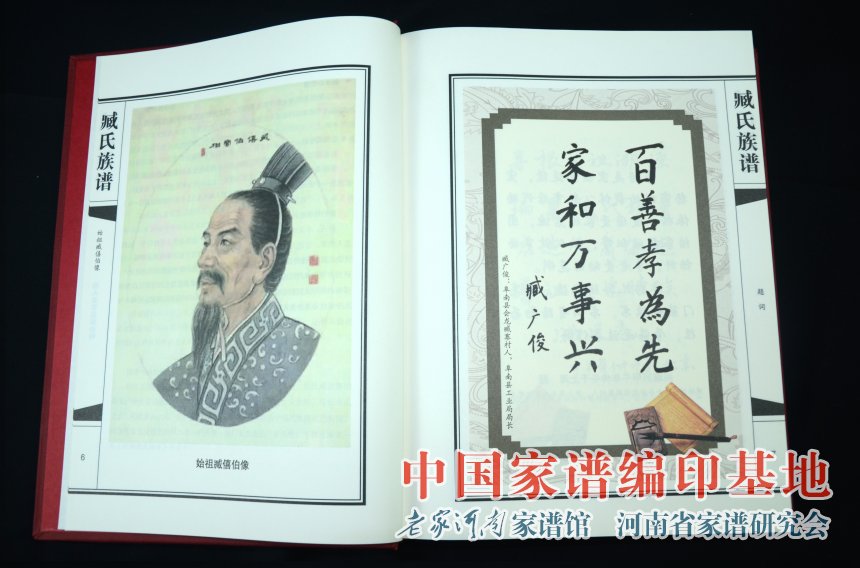 臧氏族谱
始祖臧僖伯像
臧僖伯宗祖
6
始祖臧僖伯像
臧氏族谱
题词
百善孝為先
家和万事兴
臧广俊
臧广俊：阜南县会龙臧寨村人，阜南县工业局局长
中国家谱编印基地
老家河南家谱馆 河南省家谱研究会